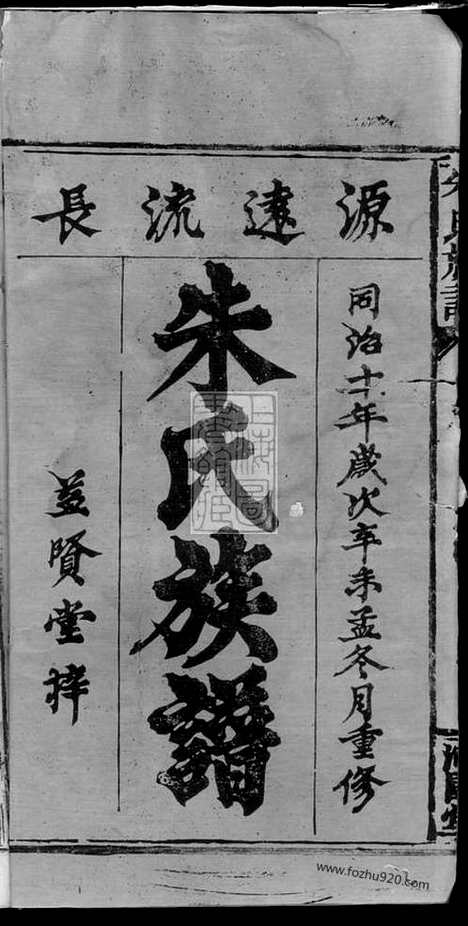 源遠流長
同治十年歲次辛未孟冬月重修
朱氏族譜
益賢堂梓
朱氏族譜
www.fozhu920.com